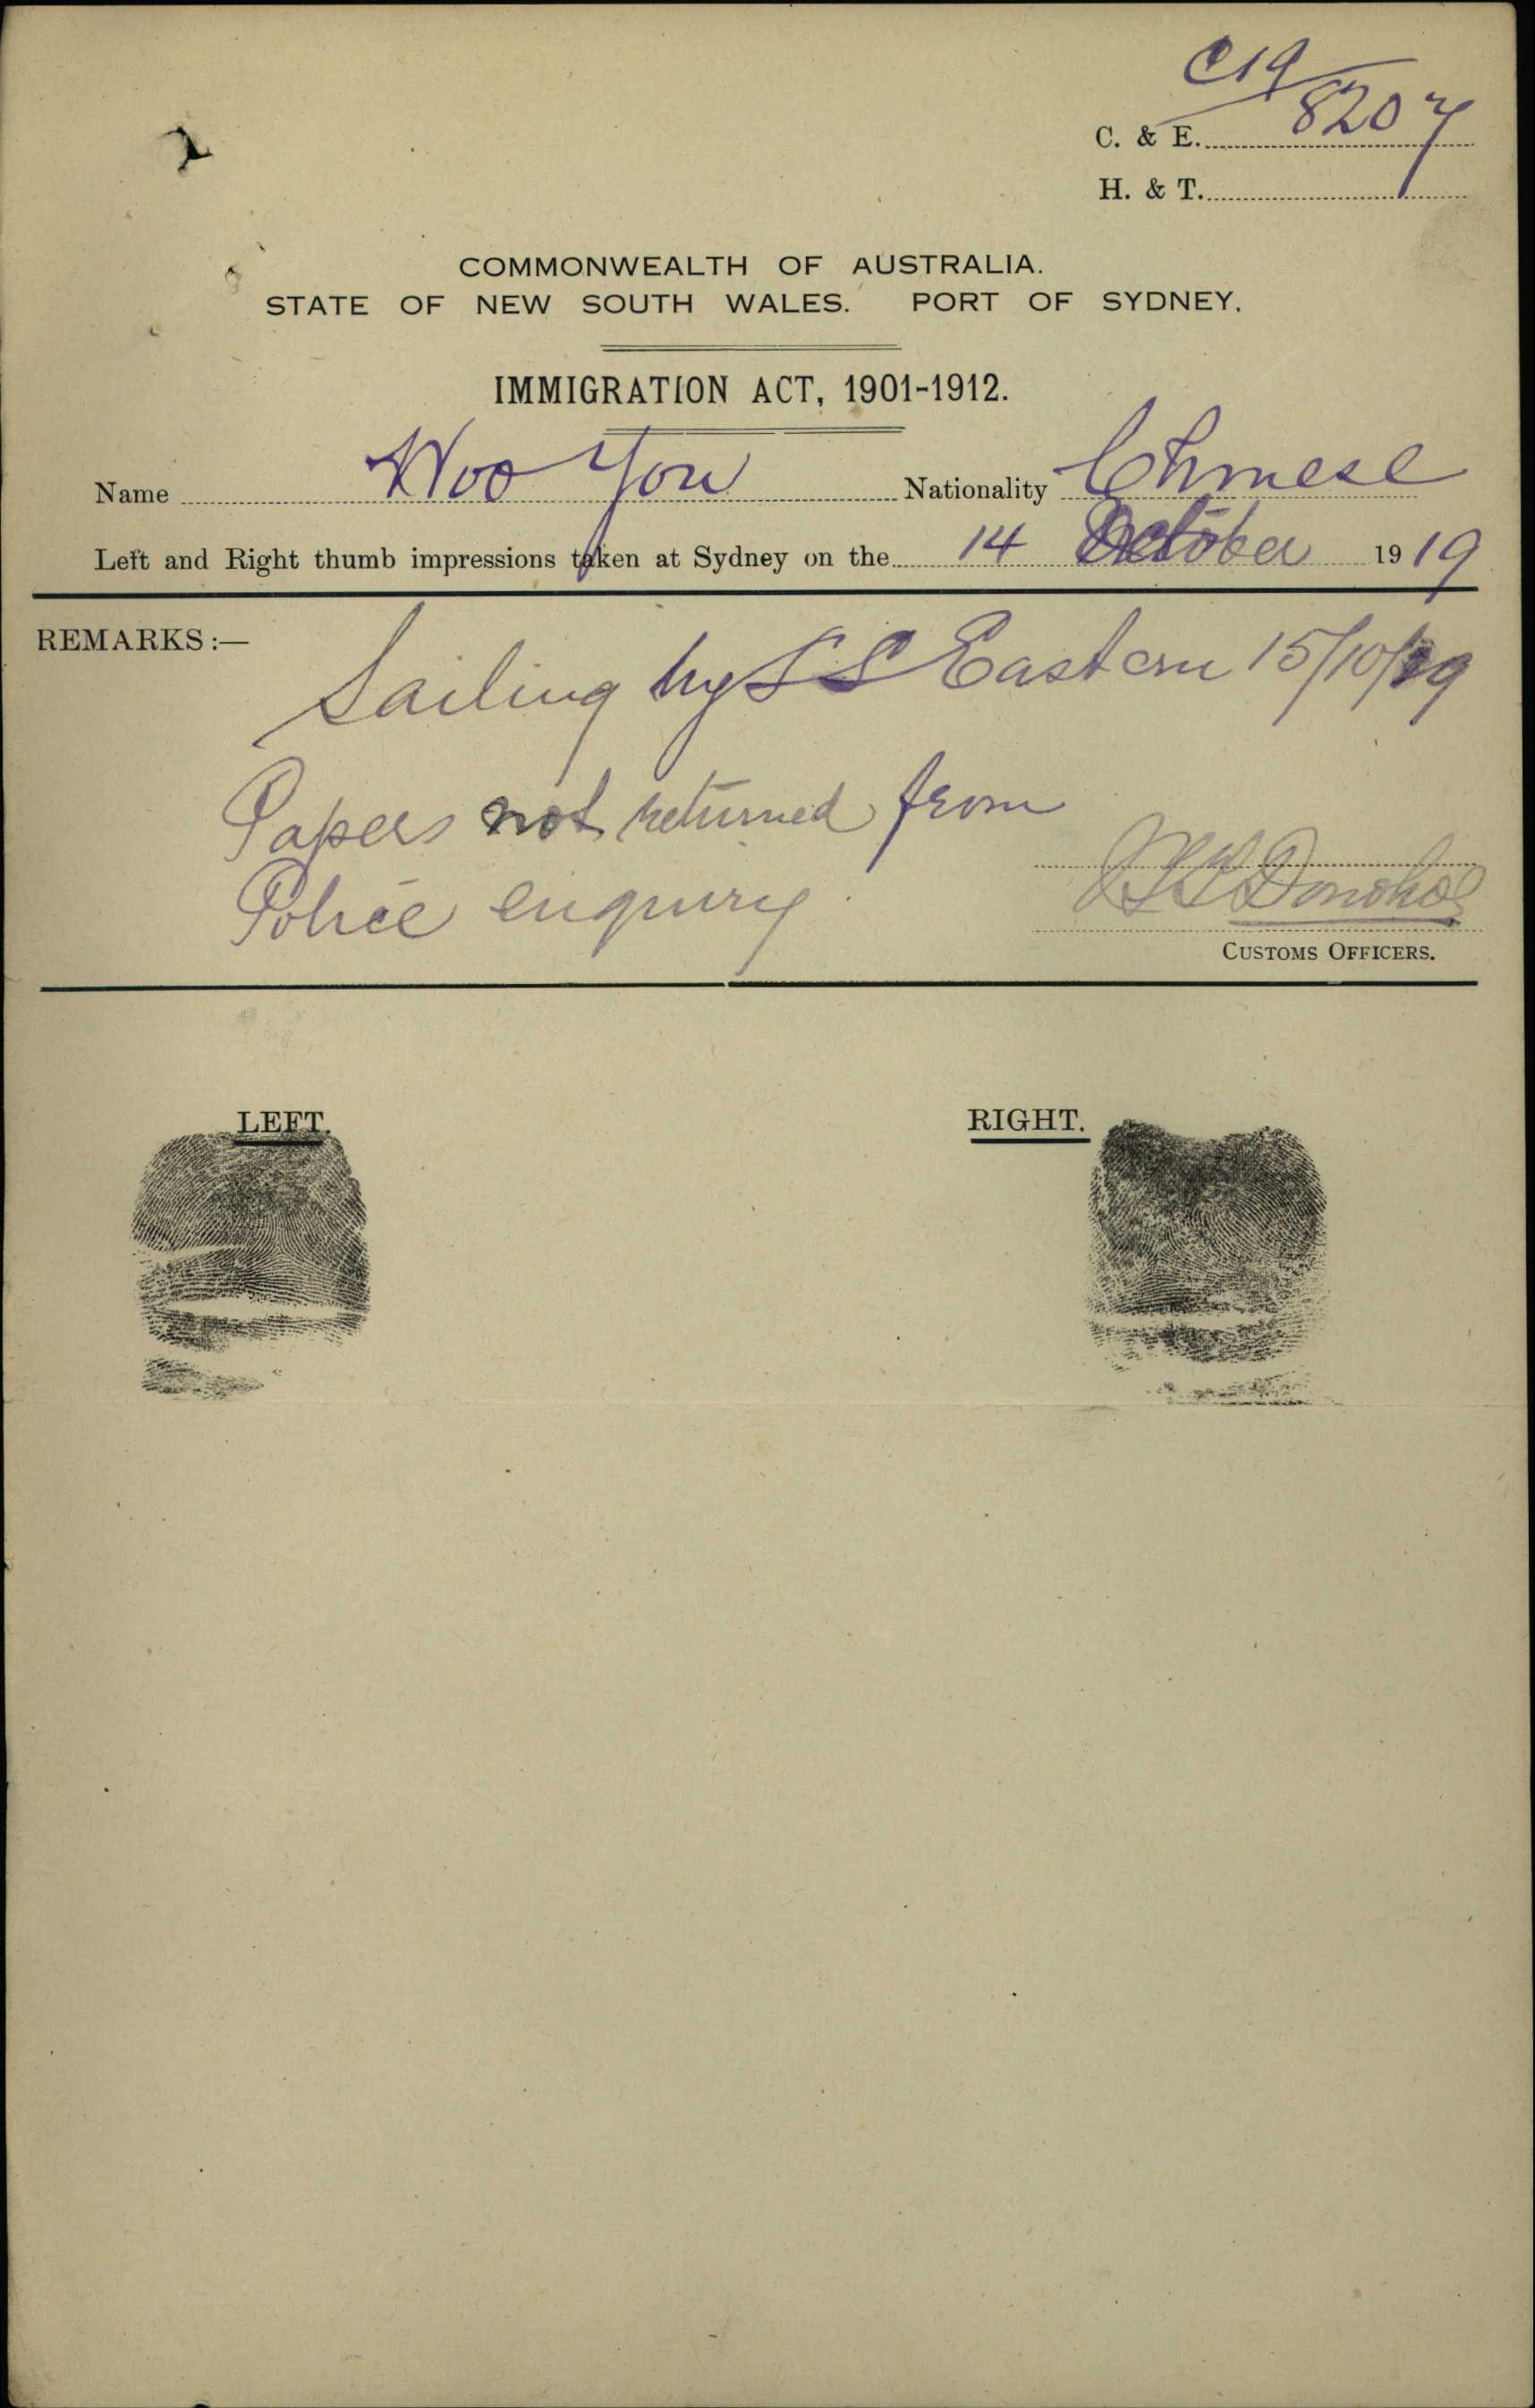 C19
C. & E. 8207
H. & T.
COMMONWEALTH OF AUSTRALIA.
STATE OF NEW SOUTH WALES. PORT OF SYDNEY.
IMMIGRATION ACT, 1901-1912.
Name Woo You Nationality Chinese
Left and Right thumb impressions taken at Sydney on the 14 October 1919
REMARKS:—
Sailing by SS Eastern 15/10/19
Papers not returned from
Police enquiry
Donohoe
CUSTOMS OFFICERS.
LEFT.
RIGHT.